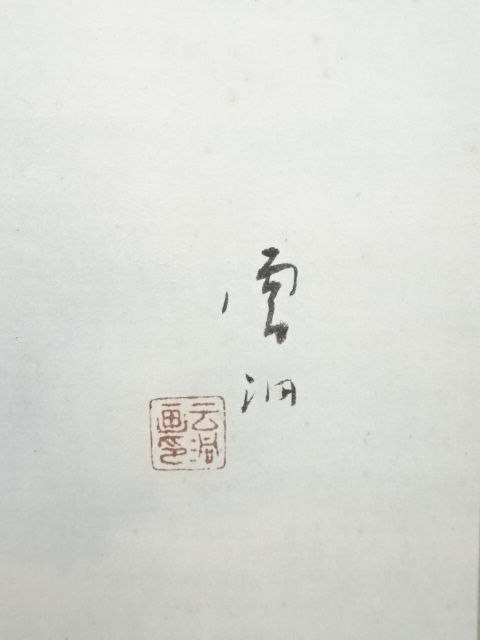 雲
洞
云洞
画印